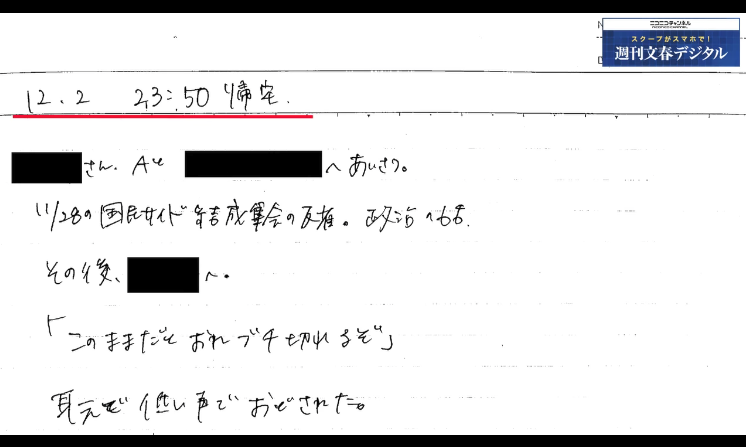 ニコニコチャンネル
スクープがスマホで!
週刊文春デジタル
12.2 23:50 帰宅.
さん. Aと へあいさつ。
11/28の国民サイド結成集会の反省。政治へも
その後、 へ。
「このままだとおれブチ切れるぞ」
耳元で低い声でおどされた。